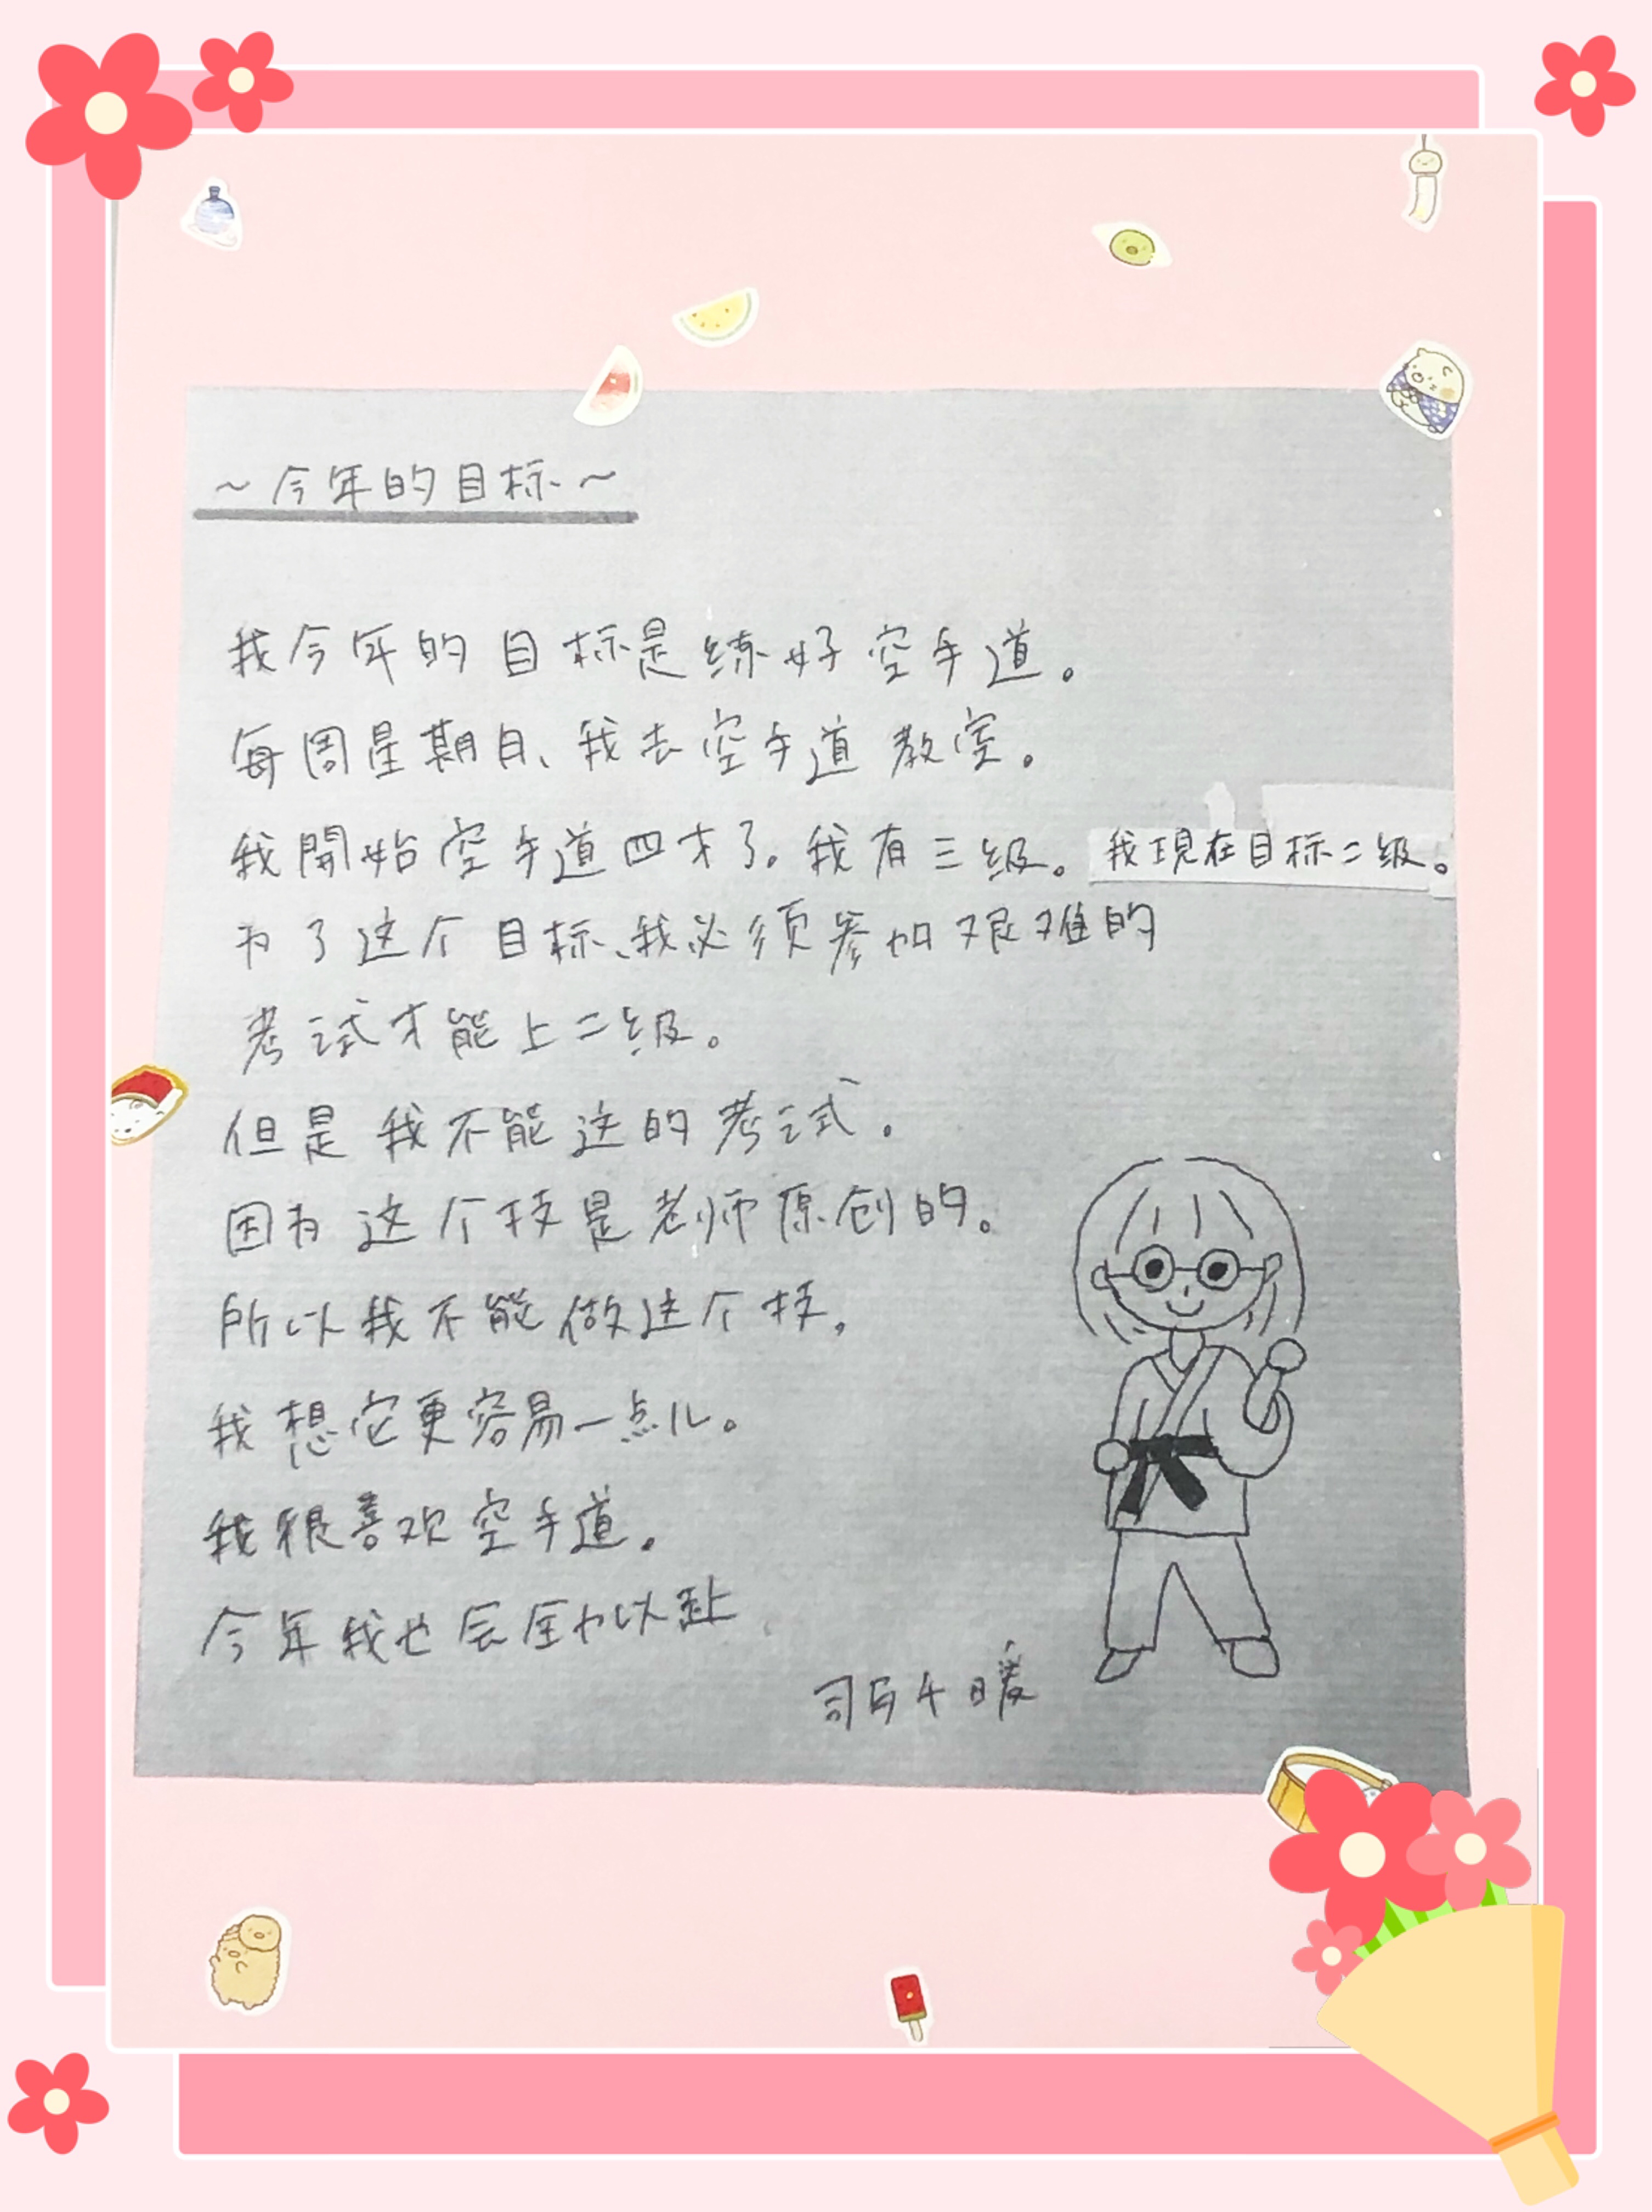 ~今年的目标~
我今年的目标是练好空手道。
每周星期日、我去空手道教室。
我開始空手道四才了。我有三级。我現在目标二级。
为了这个目标、我必须参加艰难的
考试才能上二级。
但是我不能这的考试.
因为这个技是老师原创的。
所以我不能做这个技.
我想它更容易一点儿。
我很喜欢空手道.
今年我也会全力以赴
千暖